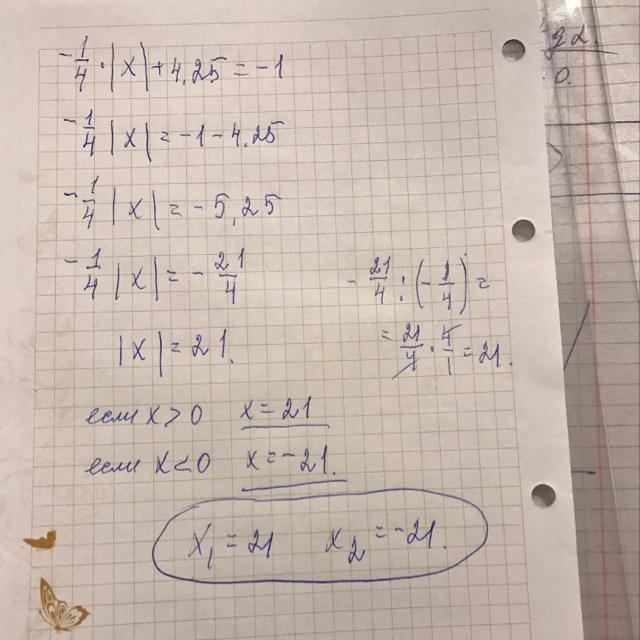 -1/4 · |x| + 4,25 = -1
-1/4 |x| = -1 - 4,25
-1/4 |x| = -5,25
-1/4 |x| = -21/4
|x| = 21.
-21/4 : (-1/4) =
= 21/4 · 4/1 = 21.
если x > 0 x = 21
если x < 0 x = -21.
x₁ = 21 x₂ = -21.
0.